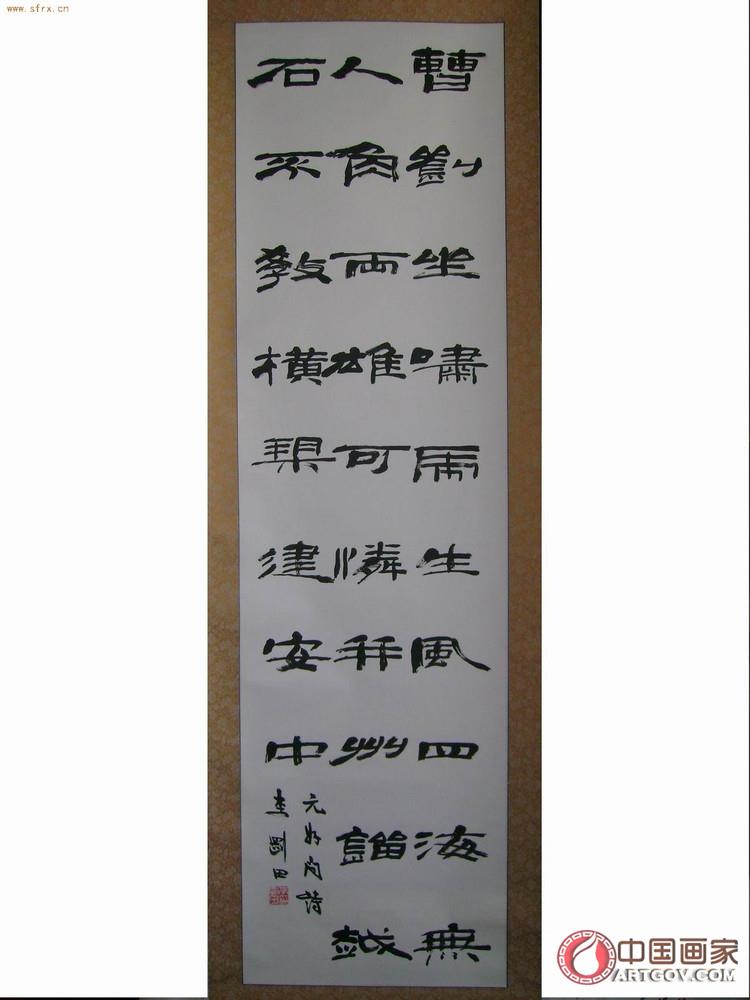 www.sfrx.cn
曹劉坐嘯虎生風四海無
人角兩雄可憐并州鎦越
石不教橫槊建安中
元好問詩
李剛田
中国画家
ARTGOV.COM